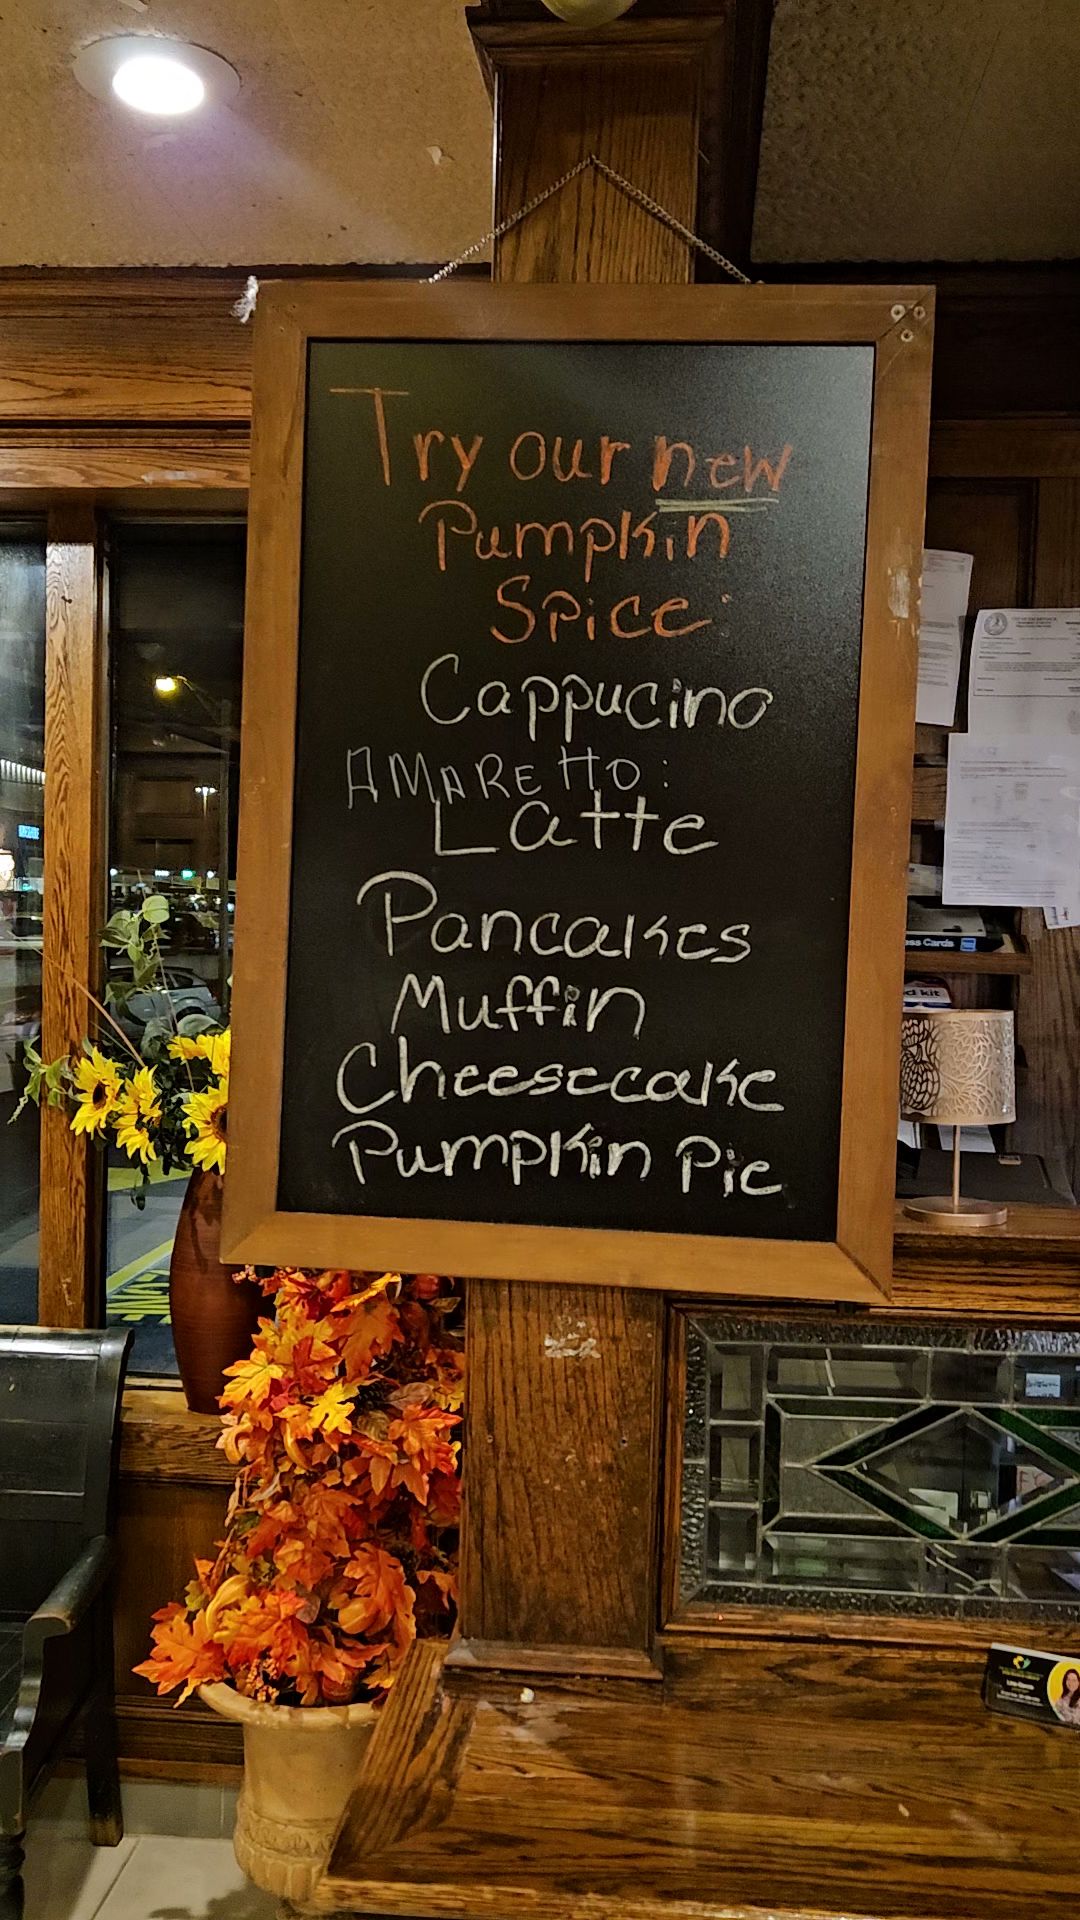 Try our new
Pumpkin
Spice
Cappucino
AMARETTO:
Latte
Pancakes
Muffin
Cheesecake
Pumpkin Pie
ss Cards
d kit